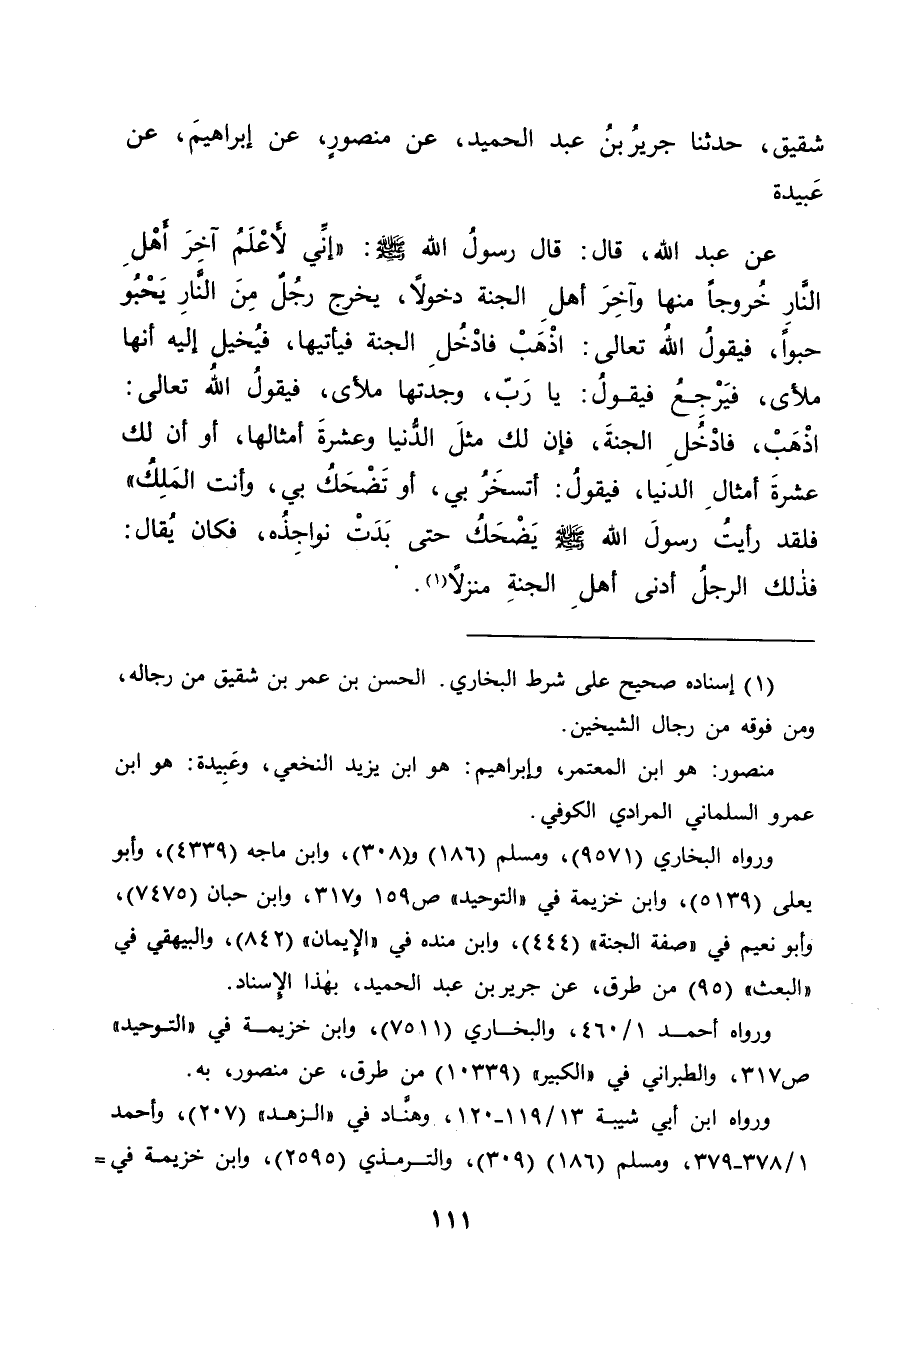 شقيق، حدثنا جريرُ بنُ عبد الحميد، عن منصورٍ، عن إبراهيمَ، عن
عَبيدة
عن عبد الله، قال: قال رسولُ الله ﷺ: «إِنِّي لَأَعْلَمُ آخِرَ أَهْلِ
النَّارِ خُروجاً منها وآخِرَ أهلِ الجنة دخولًا، يخرج رجُلٌ مِنَ النَّارِ يَحْبُو
حبواً، فيقولُ اللهُ تعالى: اذْهَبْ فادْخُلِ الجنة فيأتيها، فيُخيل إليه أنها
ملأى، فيَرْجِعُ فيقولُ: يا رَبّ، وجدتها ملأى، فيقولُ اللهُ تعالى:
اذْهَبْ، فادْخُلِ الجنةَ، فإن لك مثلَ الدُّنيا وعشرةَ أمثالها، أو أن لك
عشرةَ أمثالِ الدنيا، فيقولُ: أتسخَرُ بي، أو تَضْحَكُ بي، وأنت المَلِكُ»
فلقد رأيتُ رسولَ الله ﷺ يَضْحَكُ حتى بَدَتْ نواجِذُه، فكان يُقال:
فذٰلك الرجلُ أدنى أهلِ الجنةِ منزلًا(١).
(١) إسناده صحيح على شرط البخاري. الحسن بن عمر بن شقيق من رجاله،
ومن فوقه من رجال الشيخين.
منصور: هو ابن المعتمر، وإبراهيم: هو ابن يزيد النخعي، وعَبِيدة: هو ابن
عمرو السلماني المرادي الكوفي.
ورواه البخاري (٩٥٧١)، ومسلم (١٨٦) و(٣٠٨)، وابن ماجه (٤٣٣٩)، وأبو
يعلى (٥١٣٩)، وابن خزيمة في «التوحيد» ص١٥٩ و٣١٧، وابن حبان (٧٤٧٥)،
وأبو نعيم في «صفة الجنة» (٤٤٤)، وابن منده في «الإيمان» (٨٤٢)، والبيهقي في
«البعث» (٩٥) من طرق، عن جرير بن عبد الحميد، بهٰذا الإسناد.
ورواه أحمد ٤٦٠/١، والبخاري (٧٥١١)، وابن خزيمة في «التوحيد»
ص٣١٧، والطبراني في «الكبير» (١٠٣٣٩) من طرق، عن منصور، به.
ورواه ابن أبي شيبة ١١٩/١٣-١٢٠، وهنَّاد في «الزهد» (٢٠٧)، وأحمد
٣٧٨/١-٣٧٩، ومسلم (١٨٦) (٣٠٩)، والترمذي (٢٥٩٥)، وابن خزيمة في=
١١١